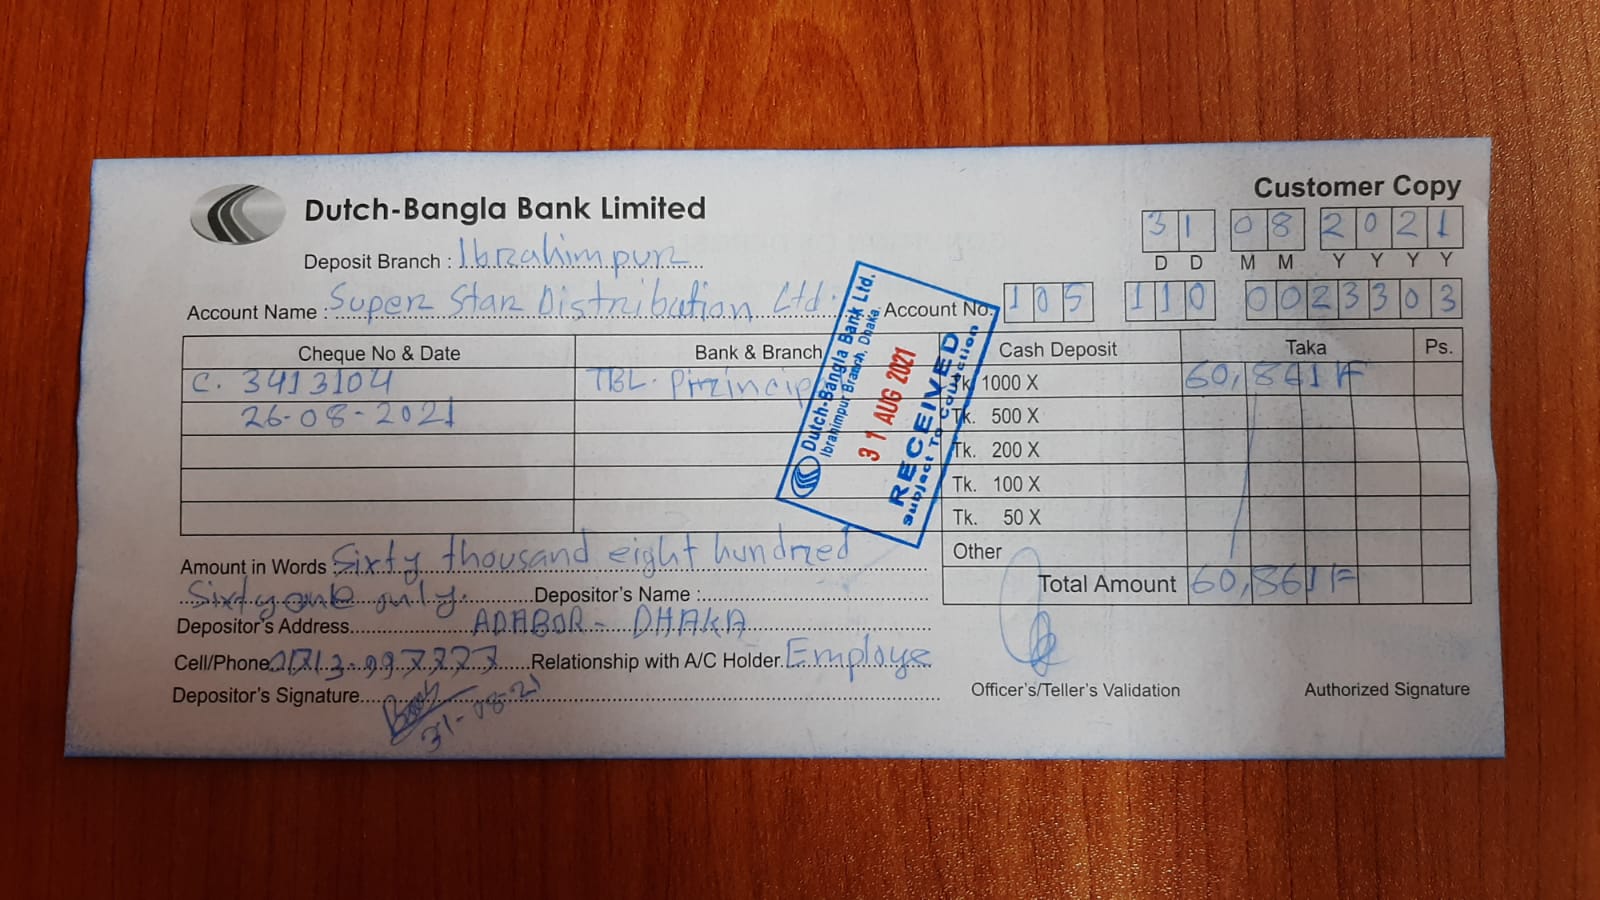 Customer Copy
Dutch-Bangla Bank Limited
31 08 2021
D D M M Y Y Y Y
Deposit Branch : Ibrahimpur
Account Name : Super Star Distribution Ltd. Account No. 105 110 0023303
Cheque No & Date Bank & Branch Cash Deposit Taka Ps.
C. 3413104 TBL. Princip Tk. 1000 X 60,861/=
26-08-2021 Tk. 500 X
Tk. 200 X
Tk. 100 X
Tk. 50 X
Other
Dutch-Bangla Bank Ltd.
Ibrahimpur Branch, Dhaka.
31 AUG 2021
RECEIVED
Subject To Collection
Amount in Words Sixty thousand eight hundred
Total Amount 60,861/=
Sixty one only. Depositor's Name :
Depositor's Address ADABOR - DHAKA
Cell/Phone 01713-997777 Relationship with A/C Holder Employe
Depositor's Signature 31-08-21
Officer's/Teller's Validation Authorized Signature